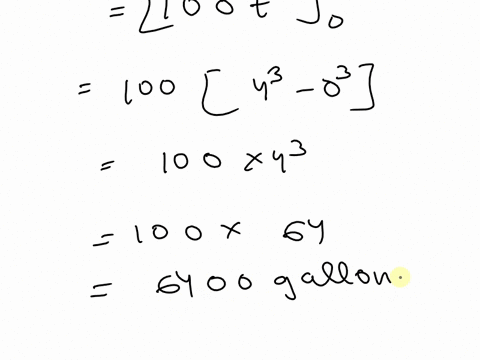 = [100 t ]0
= 100 [ 4³ - 0³ ]
= 100 x 4³
= 100 x 64
= 6400 gallon